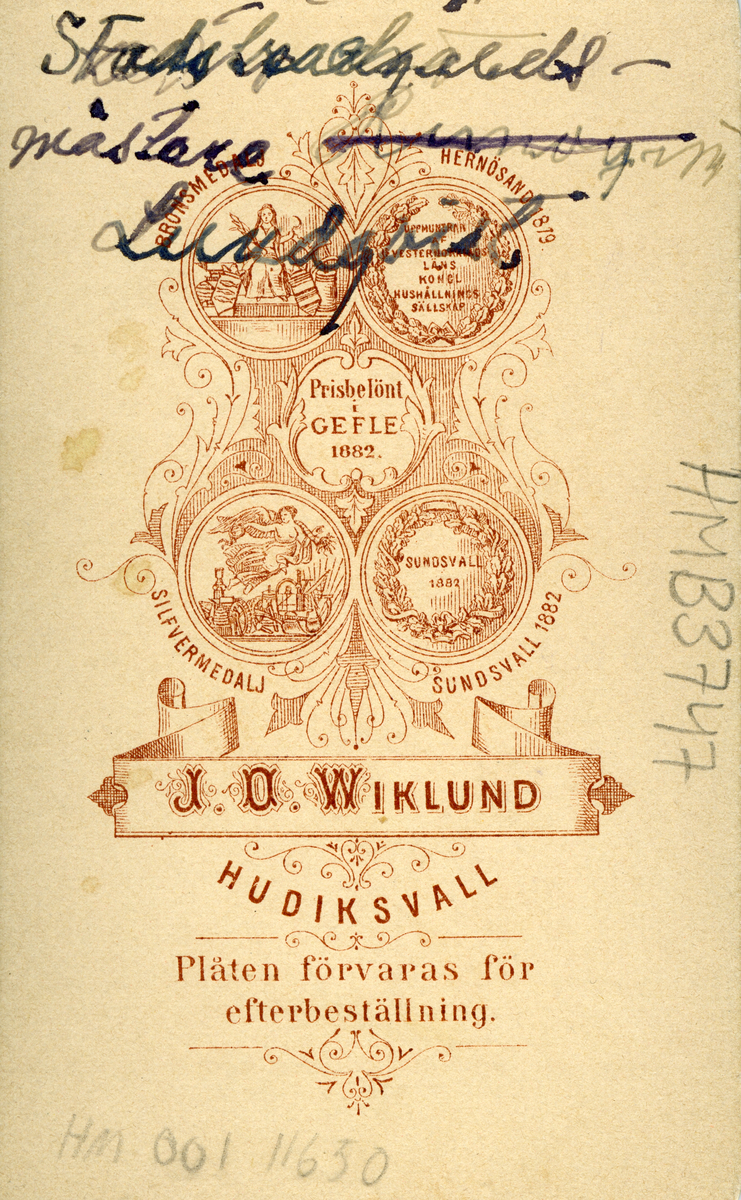 Stadsträdgårds-
mästare
Lundqvist
BRONSMEDALJ
HERNÖSAND 1879
UPPMUNTRAN
AF
VESTERNORRLANDS
LÄNS
KONGL
HUSHÅLLNINGS
SÄLLSKAP
Prisbelönt
i
GEFLE
1882.
SUNDSVALL
1882
SILFVERMEDALJ
SUNDSVALL 1882
J. O. WIKLUND
HUDIKSVALL
Plåten förvaras för
efterbeställning.
HMB3747
HM 001 11650